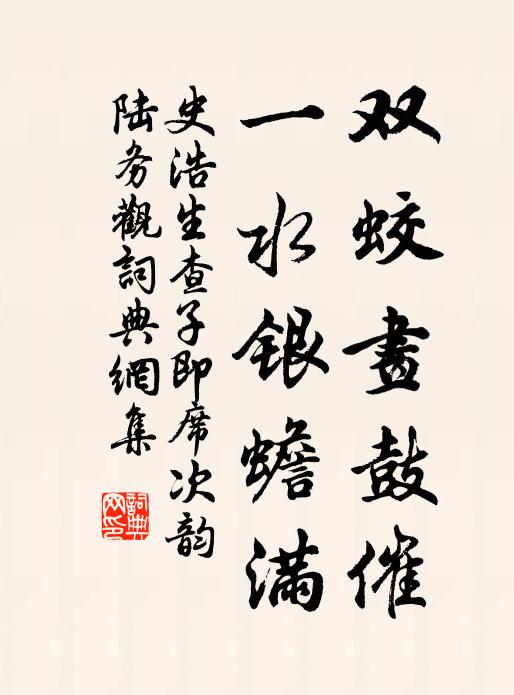 双蛟画鼓催
一水银蟾满
史浩生查子即席次韵
陆务觀詞典網集
詞典网印